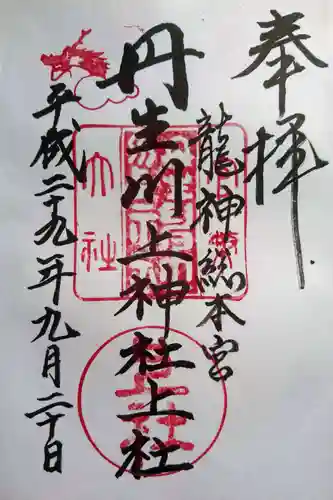 奉拝
龍神総本宮
丹生川上神社上社
平成二十九年九月二十日
大社
上社